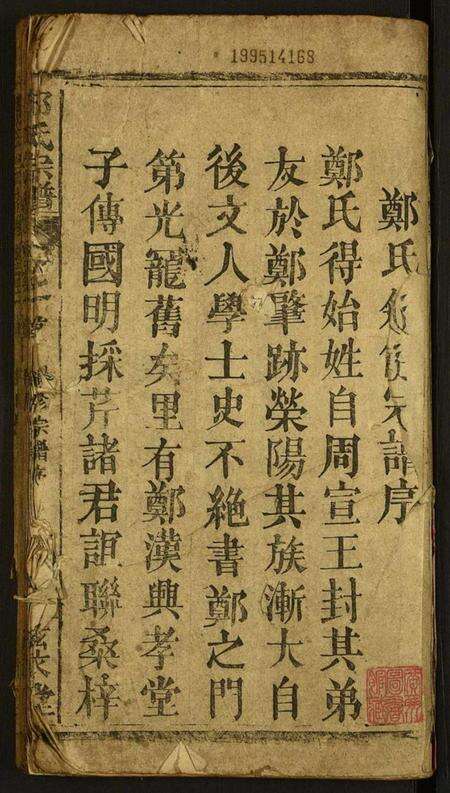 199514168
鄭氏修宗譜序
鄭氏得始姓自周宣王封其弟
友於鄭肇跡榮陽其族漸大自
後文人學士史不絶書鄭之門
第光寵舊矣里有鄭漢興孝堂
子傳國明採芹諸君誼聯桑梓
鄭氏宗譜